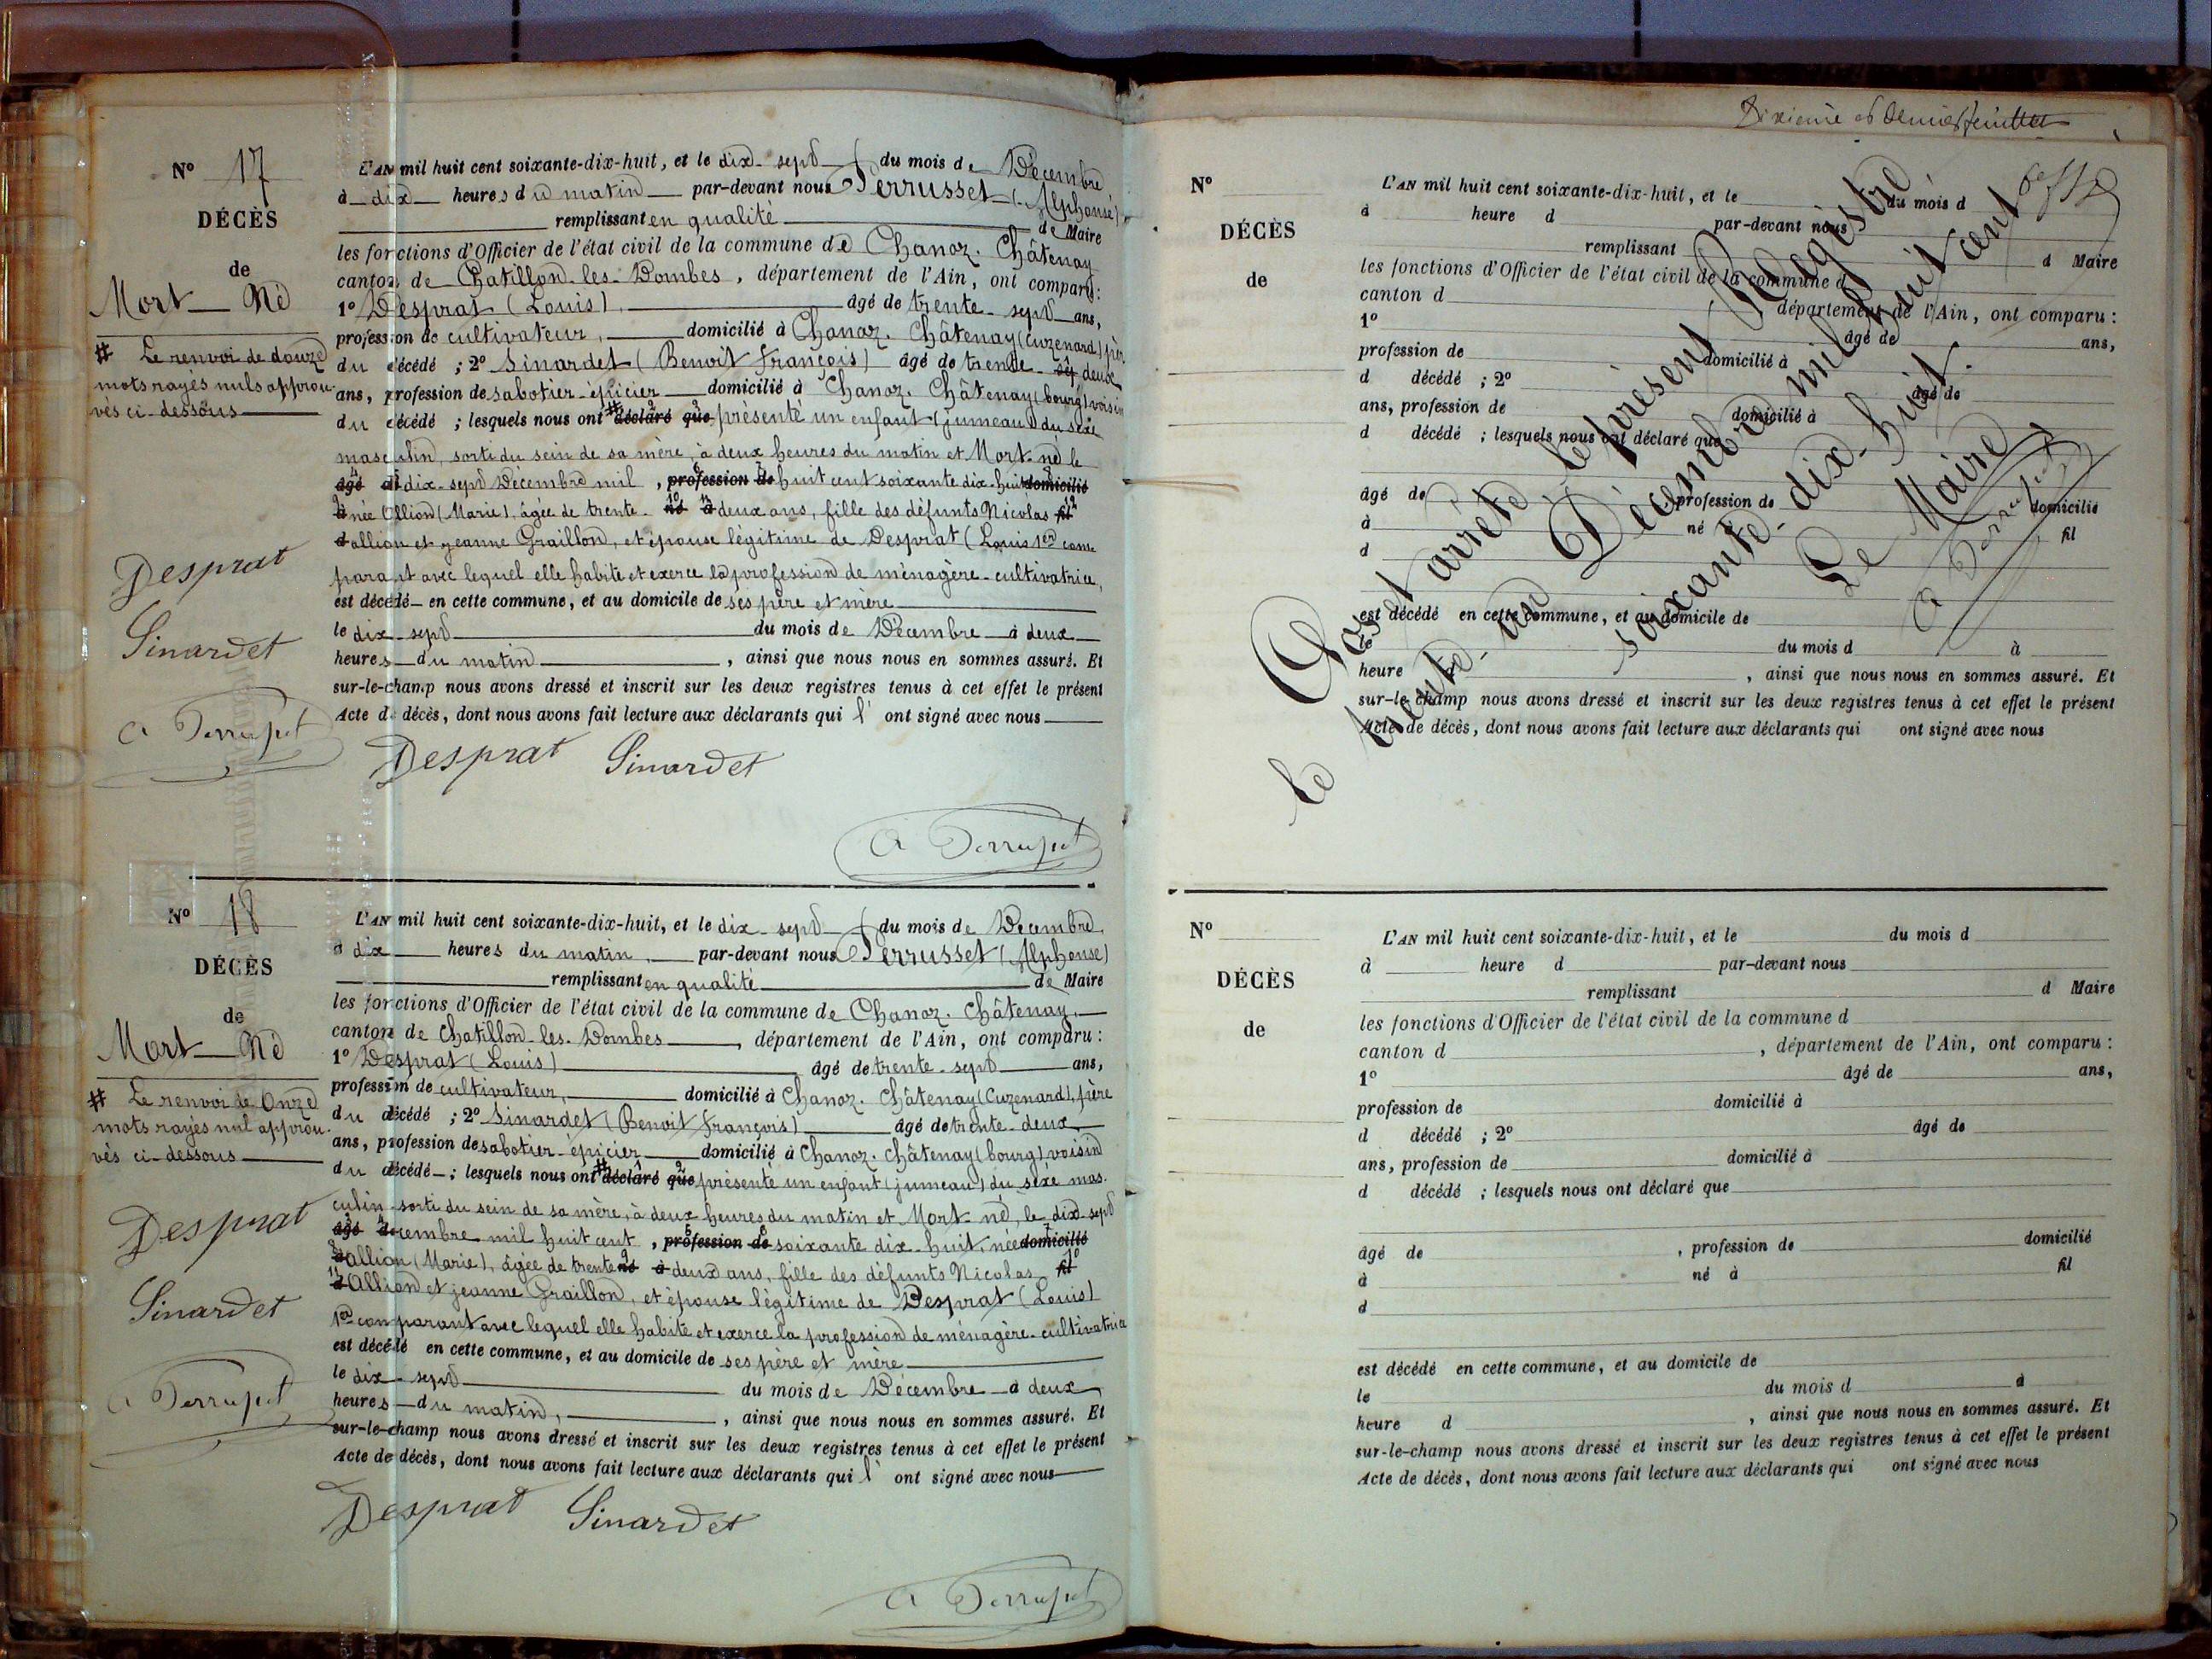 N° 17
DÉCÈS
de
Mort-Né
# Le renvoi de douze
mots rayés nuls approu-
vés ci-dessous
Desprat
Sinardet
L'AN mil huit cent soixante-dix-huit, et le dix-sept du mois de Décembre
à dix heures du matin par-devant nous Perrusset (Alphonse)
remplissant en qualité de Maire
les fonctions d'Officier de l'état civil de la commune de Chanoz-Châtenay
canton de Chatillon-les-Dombes, département de l'Ain, ont comparu :
1° Desprat (Louis) âgé de trente-sept ans,
profession de cultivateur, domicilié à Chanoz-Châtenay (Cuzenard) père
du décédé ; 2° Sinardet (Benoit François) âgé de trente-deux
ans, profession de sabotier-épicier domicilié à Chanoz-Châtenay (bourg) voisin
du décédé ; lesquels nous ont # déclaré que présenté un enfant (jumeau) du sexe
masculin, sorti du sein de sa mère, à deux heures du matin et Mort-né le
âgé de dix-sept Décembre mil, profession de huit cent soixante dix-huit domicilié
à née Allion (Marie), âgée de trente- né à deux ans, fille des défunts Nicolas fil
d allion et jeanne Graillon, et épouse légitime de Desprat (Louis) 1er com-
parant avec lequel elle habite et exerce la profession de ménagère-cultivatrice,
est décédé en cette commune, et au domicile de ses père et mère
le dix-sept du mois de Décembre à deux
heures du matin, ainsi que nous nous en sommes assuré. Et
sur-le-champ nous avons dressé et inscrit sur les deux registres tenus à cet effet le présent
Acte de décès, dont nous avons fait lecture aux déclarants qui l' ont signé avec nous
Desprat Sinardet
A Perrusset
N° 18
DÉCÈS
de
Mort-Né
# Le renvoi de Onze
mots rayés nul approu-
vés ci-dessous
Desprat
Sinardet
A Perrusset
L'AN mil huit cent soixante-dix-huit, et le dix-sept du mois de Décembre
à dix heures du matin, par-devant nous Perrusset (Alphonse)
remplissant en qualité de Maire
les fonctions d'Officier de l'état civil de la commune de Chanoz-Châtenay
canton de Chatillon-les-Dombes, département de l'Ain, ont comparu :
1° Desprat (Louis) âgé de trente-sept ans,
profession de cultivateur, domicilié à Chanoz-Châtenay (Cuzenard), père
du décédé ; 2° Sinardet (Benoit François) âgé de trente-deux
ans, profession de sabotier-épicier domicilié à Chanoz-Châtenay (bourg) voisin
du décédé ; lesquels nous ont # déclaré que présenté un enfant (jumeau) du sexe mas-
culin sorti du sein de sa mère, à deux heures du matin et Mort-né, le dix-sept
âgé decembre mil huit cent, profession de soixante dix-huit, née domicilié
à Allion (Marie), âgée de trente né à deux ans, fille des défunts Nicolas fil
d Allion et jeanne Graillon, et épouse légitime de Desprat (Louis)
1er comparant avec lequel elle habite et exerce la profession de ménagère-cultivatrice
est décédé en cette commune, et au domicile de ses père et mère
le dix-sept du mois de Décembre à deux
heures du matin, ainsi que nous nous en sommes assuré. Et
sur-le-champ nous avons dressé et inscrit sur les deux registres tenus à cet effet le présent
Acte de décès, dont nous avons fait lecture aux déclarants qui l' ont signé avec nous
Desprat Sinardet
A Perrusset
Dixième et dernier feuillet
N°
DÉCÈS
de
L'AN mil huit cent soixante-dix-huit, et le du mois d
à heure d par-devant nous
remplissant d Maire
les fonctions d'Officier de l'état civil de la commune d
canton d département de l'Ain, ont comparu :
1° âgé de ans,
profession de domicilié à
d décédé ; 2° âgé de
ans, profession de domicilié à
d décédé ; lesquels nous ont déclaré que
âgé de, profession de domicilié
à né à fil
d
est décédé en cette commune, et au domicile de
le du mois d à
heure d, ainsi que nous nous en sommes assuré. Et
sur-le-champ nous avons dressé et inscrit sur les deux registres tenus à cet effet le présent
Acte de décès, dont nous avons fait lecture aux déclarants qui ont signé avec nous
Clos et arrêté le présent Registre
le trente-un Décembre mil huit cent
soixante-dix-huit.
Le Maire
A Perrusset
N°
DÉCÈS
de
L'AN mil huit cent soixante-dix-huit, et le du mois d
à heure d par-devant nous
remplissant d Maire
les fonctions d'Officier de l'état civil de la commune d
canton d, département de l'Ain, ont comparu :
1° âgé de ans,
profession de domicilié à
d décédé ; 2° âgé de
ans, profession de domicilié à
d décédé ; lesquels nous ont déclaré que
âgé de, profession de domicilié
à né à fil
d
est décédé en cette commune, et au domicile de
le du mois d à
heure d, ainsi que nous nous en sommes assuré. Et
sur-le-champ nous avons dressé et inscrit sur les deux registres tenus à cet effet le présent
Acte de décès, dont nous avons fait lecture aux déclarants qui ont signé avec nous